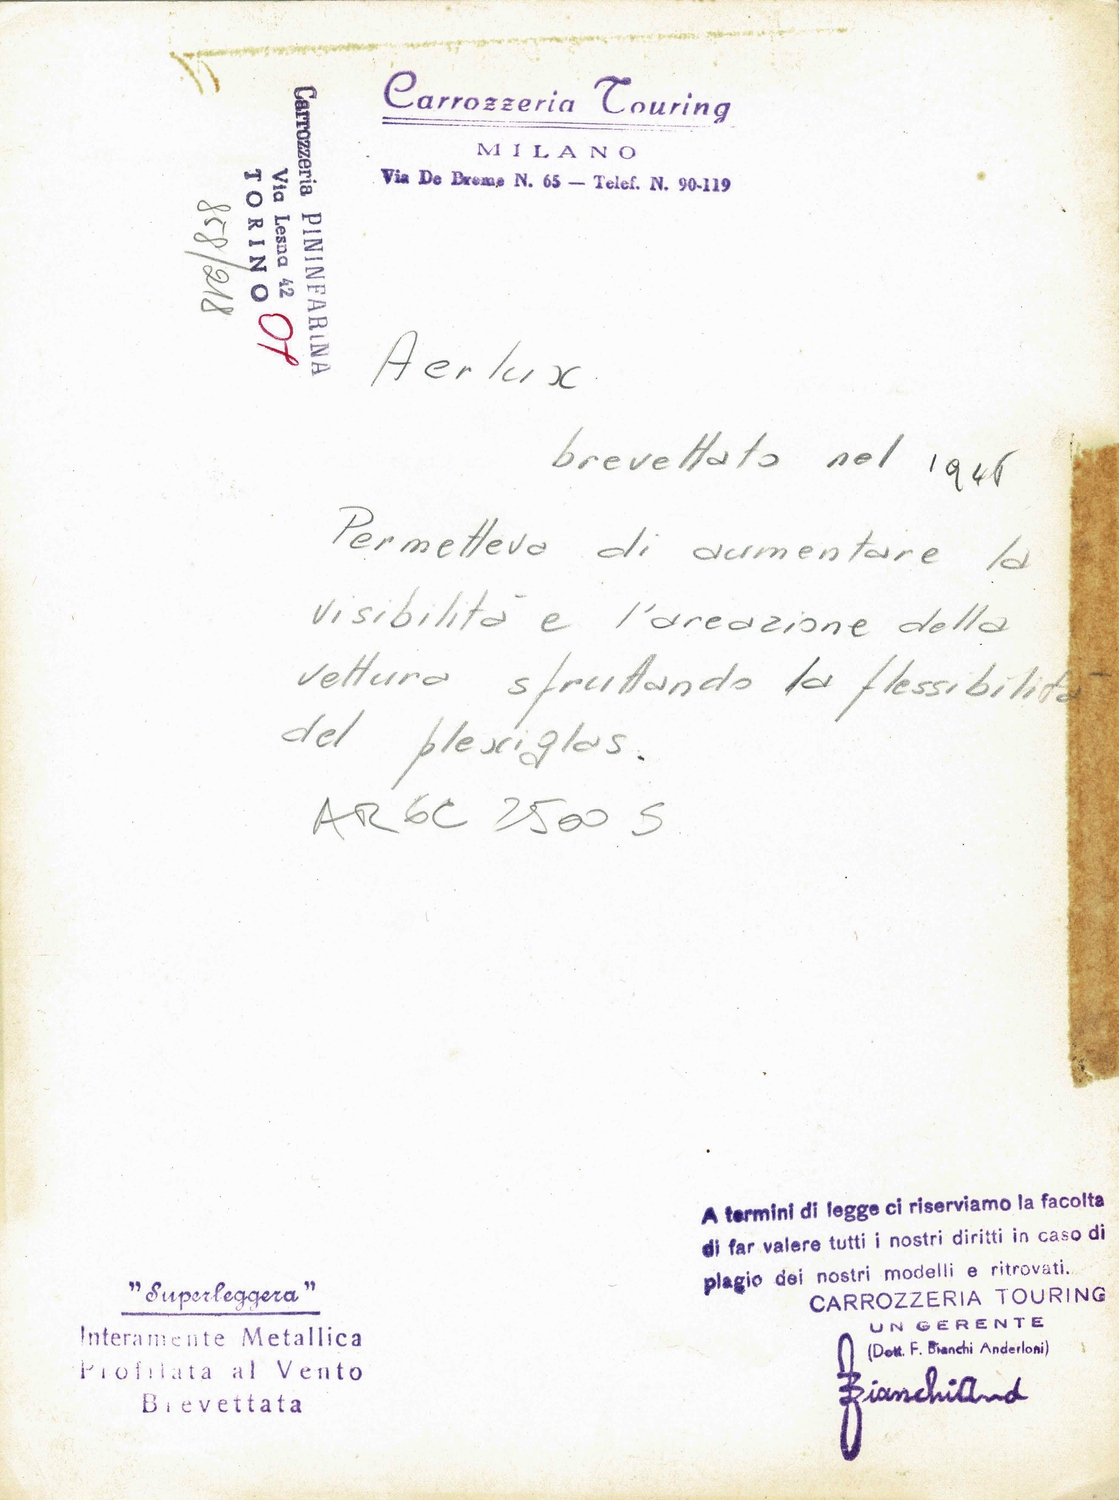 Carrozzeria Touring
MILANO
Via De Breme N. 65 — Telef. N. 90-119
Carrozzeria PININFARINA
Via Lesna 42
TORINO
07
858/218
Aerlux
brevettato nel 1946
Permetteva di aumentare la
visibilità e l'areazione della
vettura sfruttando la flessibilità
del plexiglas.
AR 6C 2500 S
A termini di legge ci riserviamo la facolta
di far valere tutti i nostri diritti in caso di
plagio dei nostri modelli e ritrovati.
CARROZZERIA TOURING
UN GERENTE
(Dott. F. Bianchi Anderloni)
FBianchiAnd
"Superleggera"
Interamente Metallica
Profilata al Vento
Brevettata